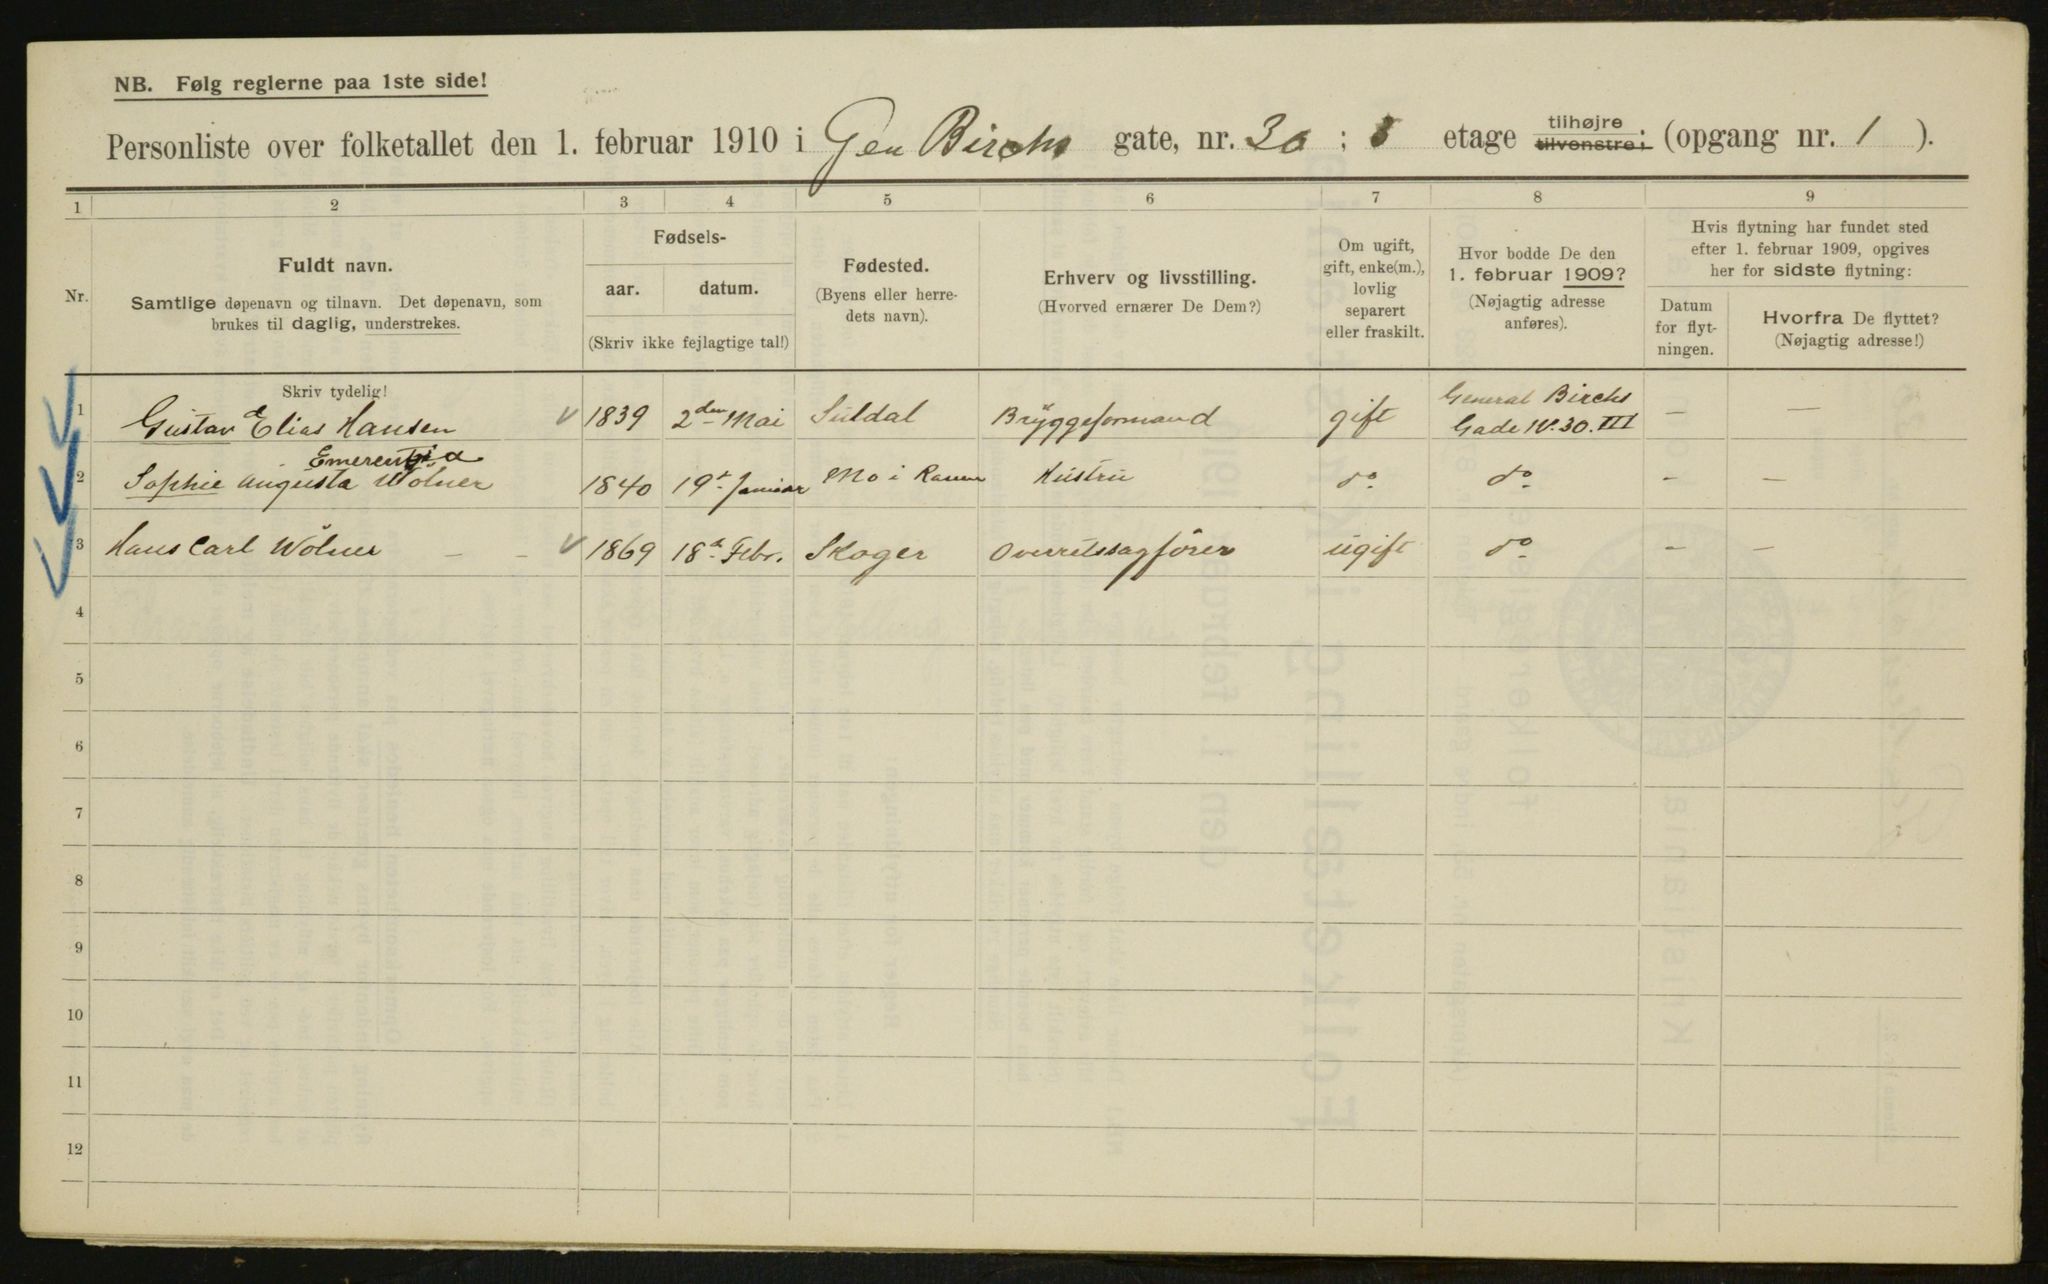 NB. Følg reglerne paa 1ste side!
Personliste over folketallet den 1. februar 1910 i Gen Birchs gate, nr. 30 : 3 etage tilhøjre tilvenstre; (opgang nr. 1 ).
1 2 3 4 5 6 7 8 9
Nr.
Fuldt navn.
Samtlige døpenavn og tilnavn. Det døpenavn, som
brukes til daglig, understrekes.
Fødsels-
aar. datum.
(Skriv ikke fejlagtige tal!)
Fødested.
(Byens eller herre-
dets navn).
Erhverv og livsstilling.
(Hvorved ernærer De Dem?)
Om ugift,
gift, enke(m.),
lovlig
separert
eller fraskilt.
Hvor bodde De den
1. februar 1909?
(Nøjagtig adresse
anføres).
Hvis flytning har fundet sted
efter 1. februar 1909, opgives
her for sidste flytning:
Datum
for flyt-
ningen.
Hvorfra De flyttet?
(Nøjagtig adresse!)
Skriv tydelig!
1 Gustav Elias Hansen 1839 2den Mai Suldal Bryggeformand gift General Birchs
Gade No. 30. III – –
Emerentia
2 Sophie Augusta Wölner 1840 19de Januar Mo i Ranen Hustru do do – –
3 Hans Carl Wölner – – 1869 18de Febr. Skoger Overretssagfører ugift do – –
4
5
6
7
8
9
10
11
12